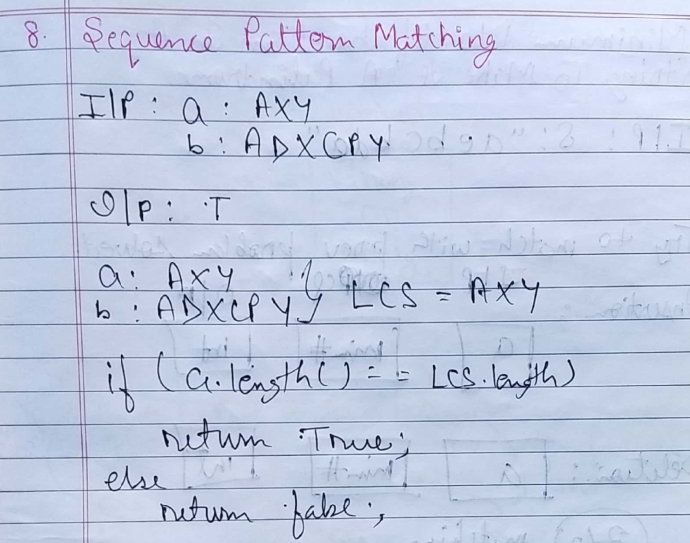 8. Sequence Pattern Matching
I/P : a : AXY
b : ADXCPY
O/P : T
a : AXY
b : ADXCPY } LCS = AXY
if (a.length() == LCS.length)
return True;
else
return false;